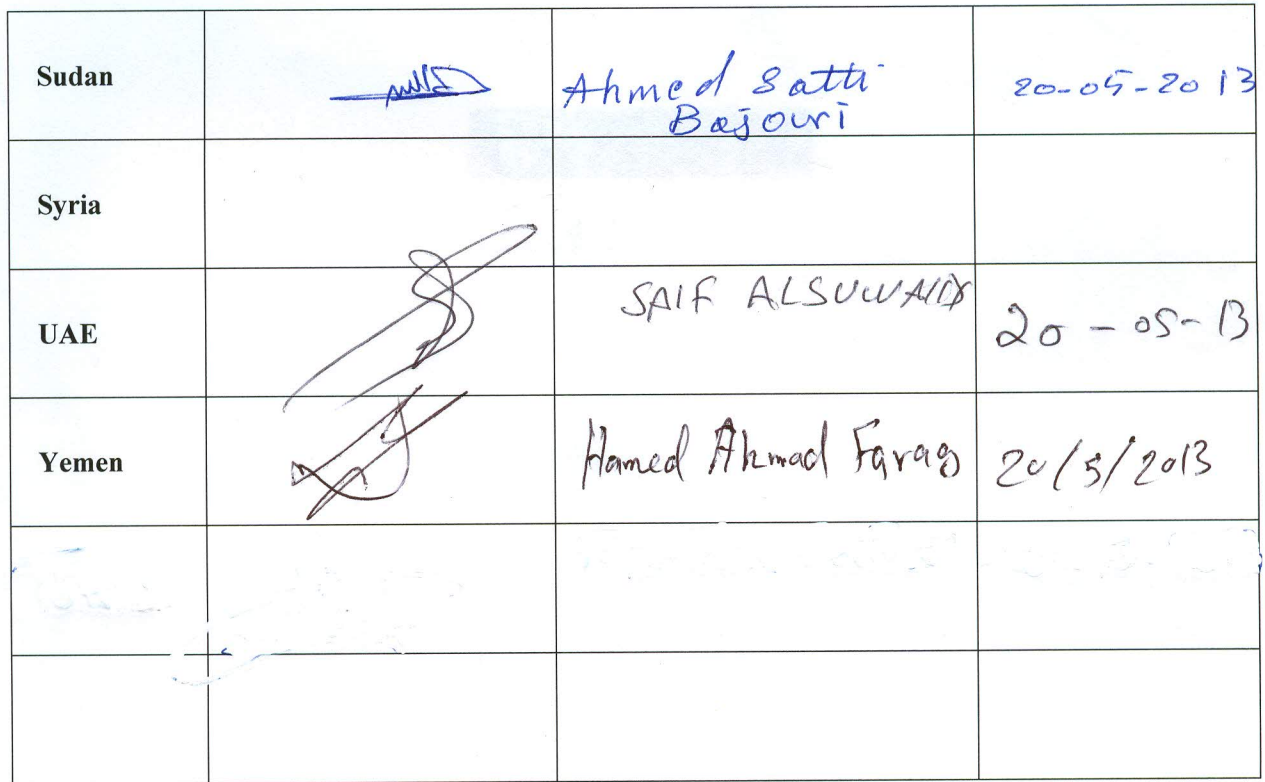 Sudan
Ahmed Satti
Bajouri
20-05-2013
Syria
UAE
SAIF ALSUWAIDI
20-05-13
Yemen
Hamed Ahmad Farag
20/5/2013